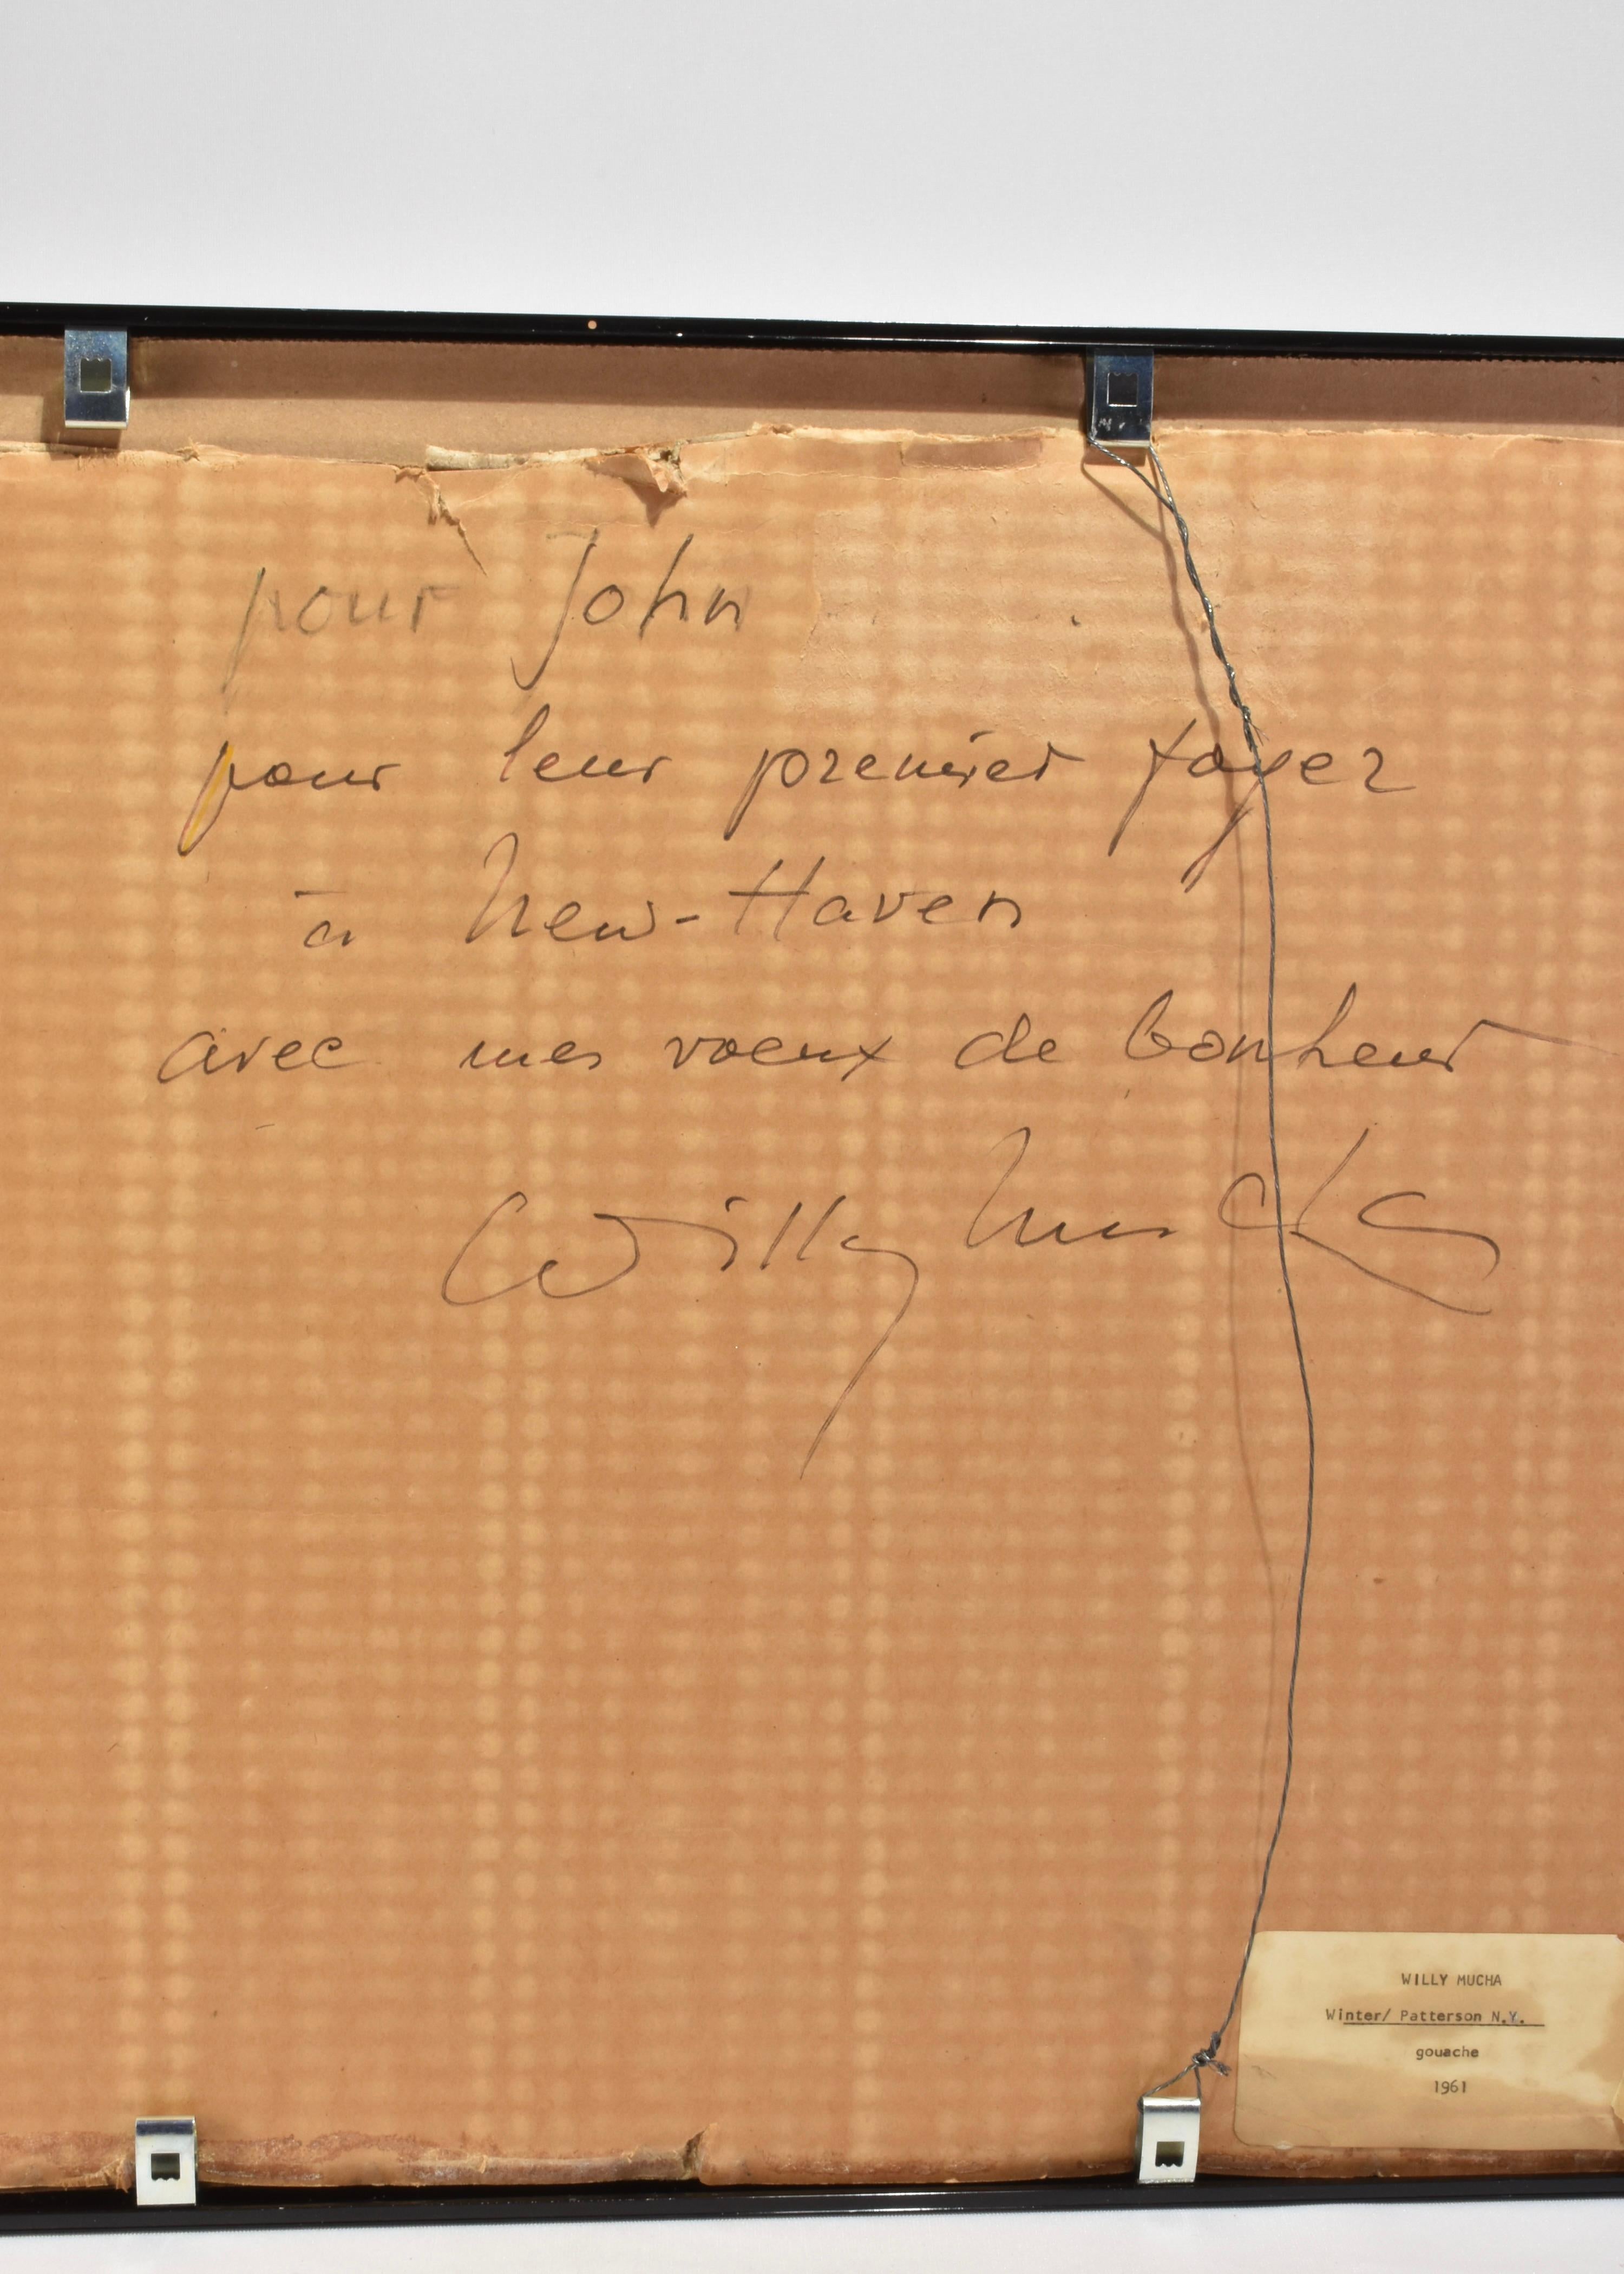 pour John
pour leur premier foyer
à New-Haven
avec mes voeux de bonheur
Willy Mucha
WILLY MUCHA
Winter/ Patterson N.Y.
gouache
1961